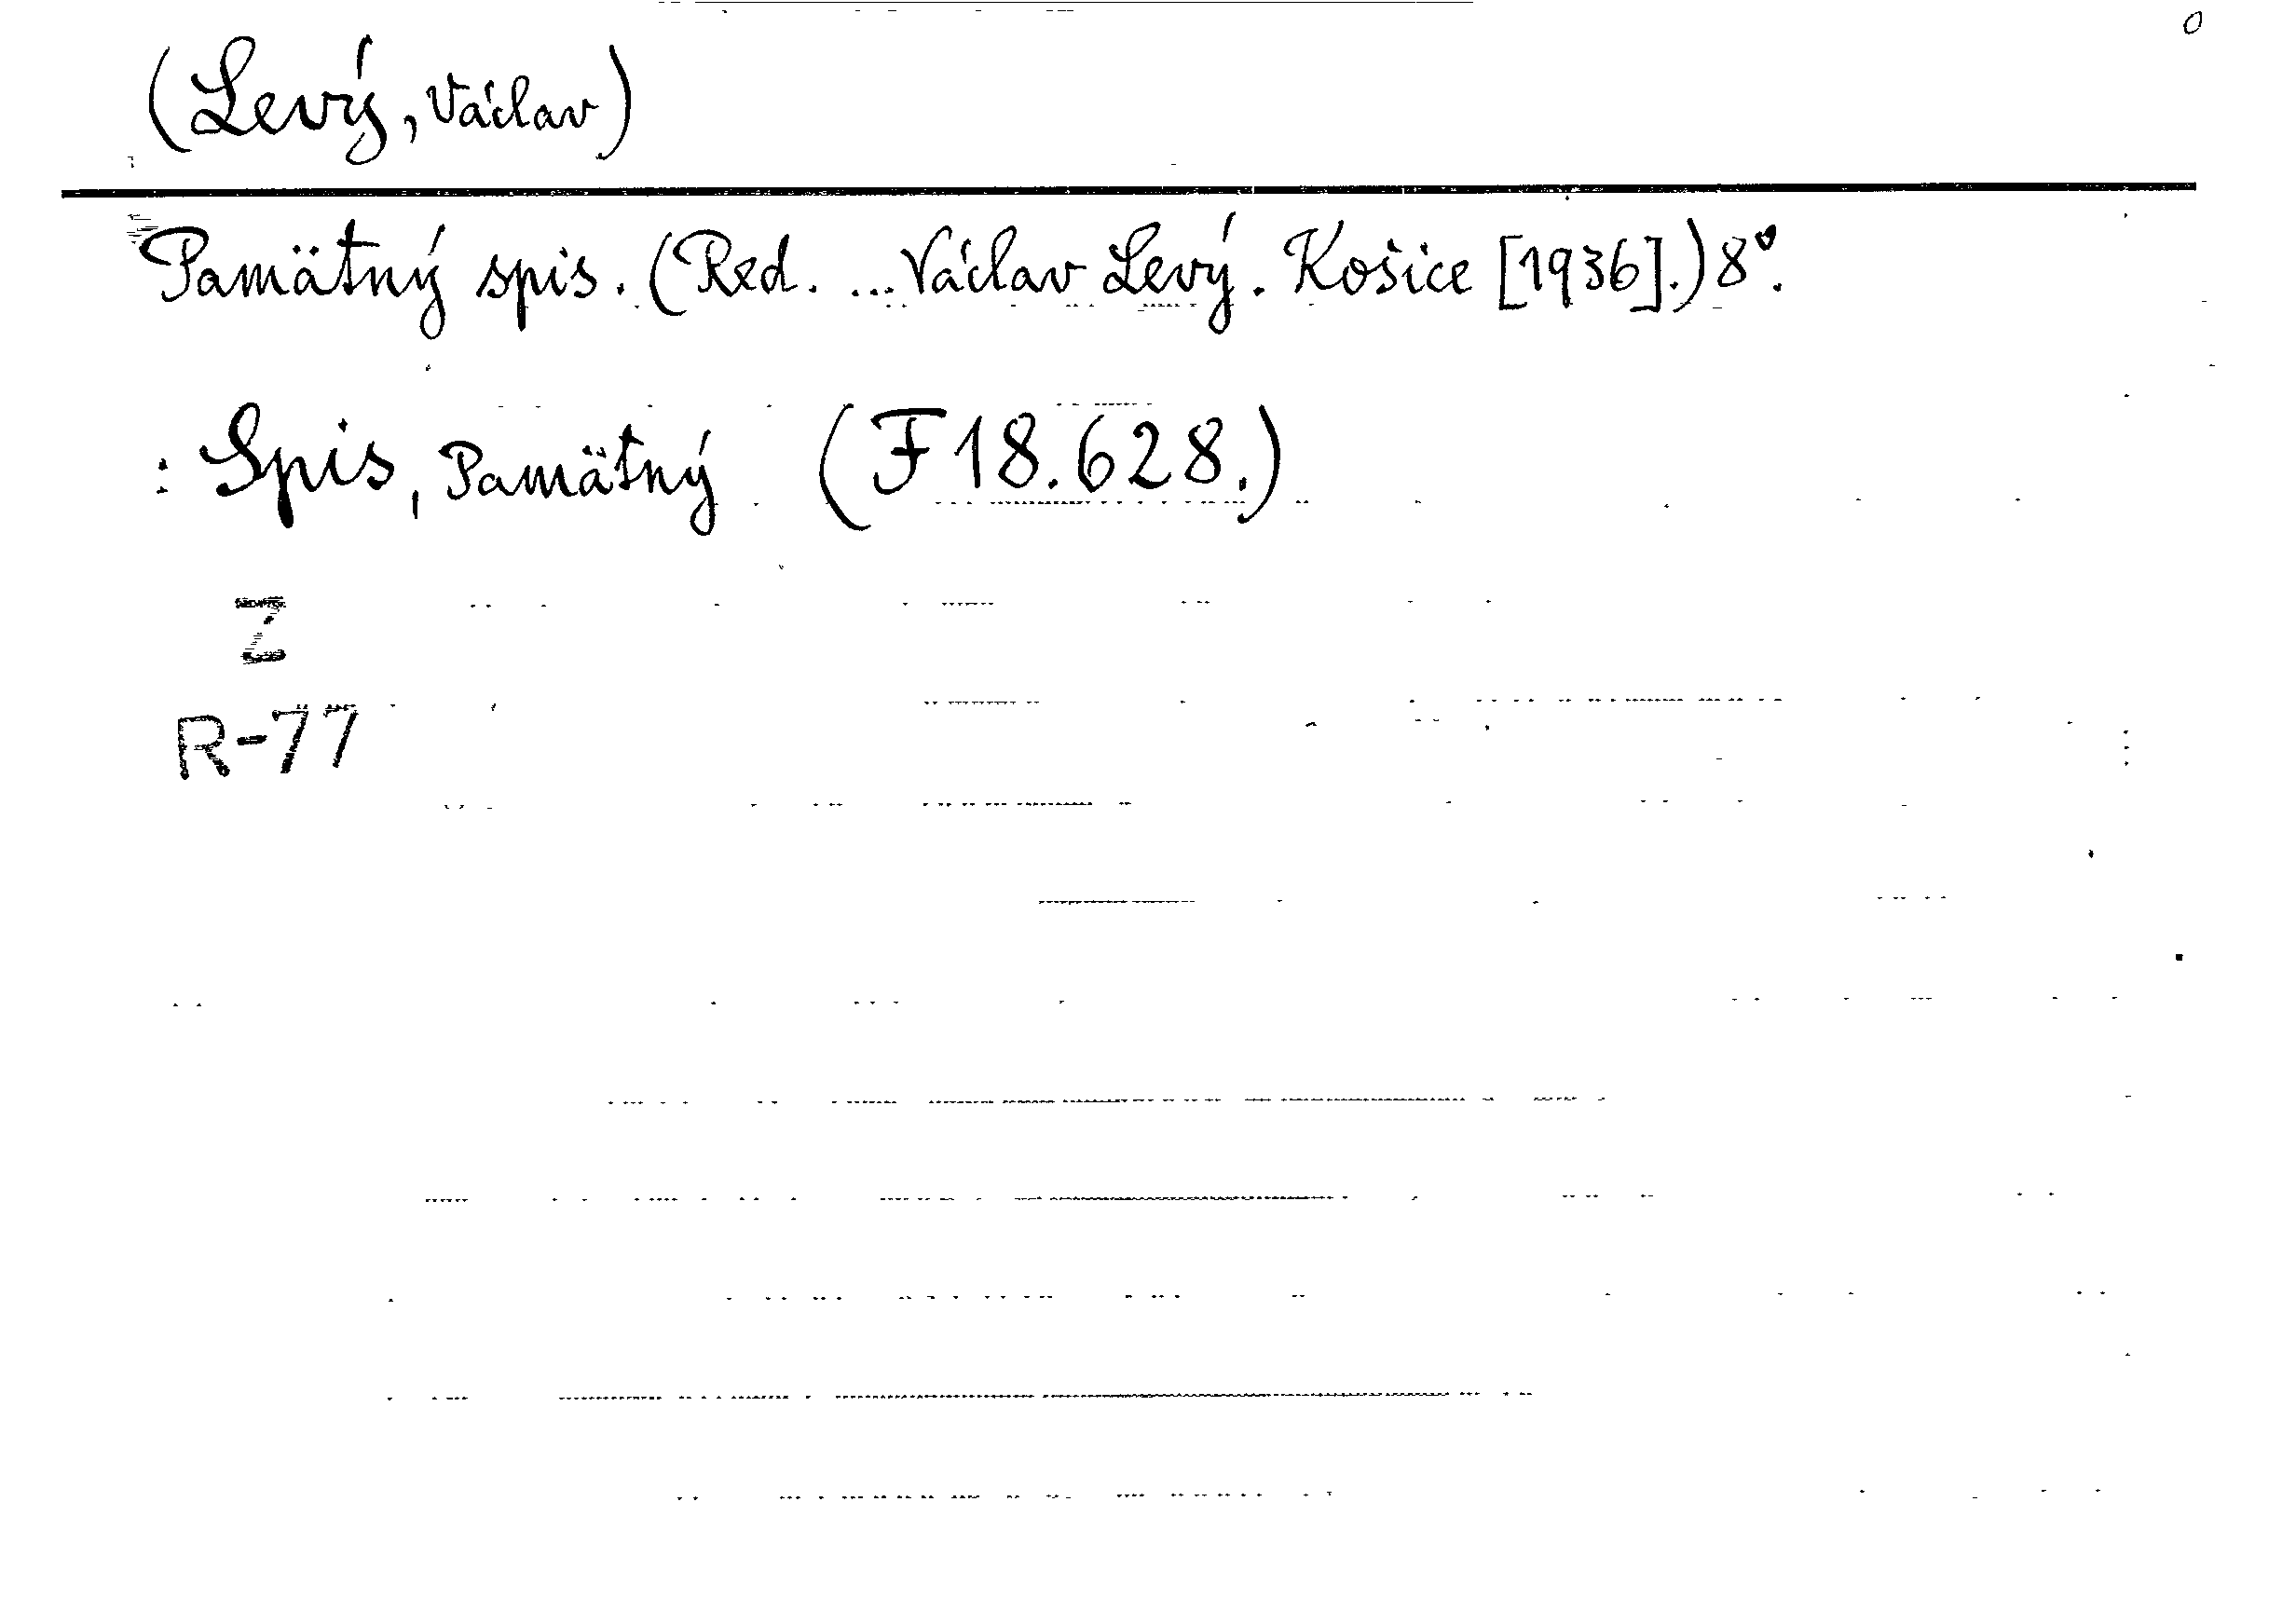 (Levý, Václav)
Pamätný spis. (Red. ... Václav Levý. Košice [1936].) 8°.
: Spis, Pamätný (F 18.628.)
Z
R-77